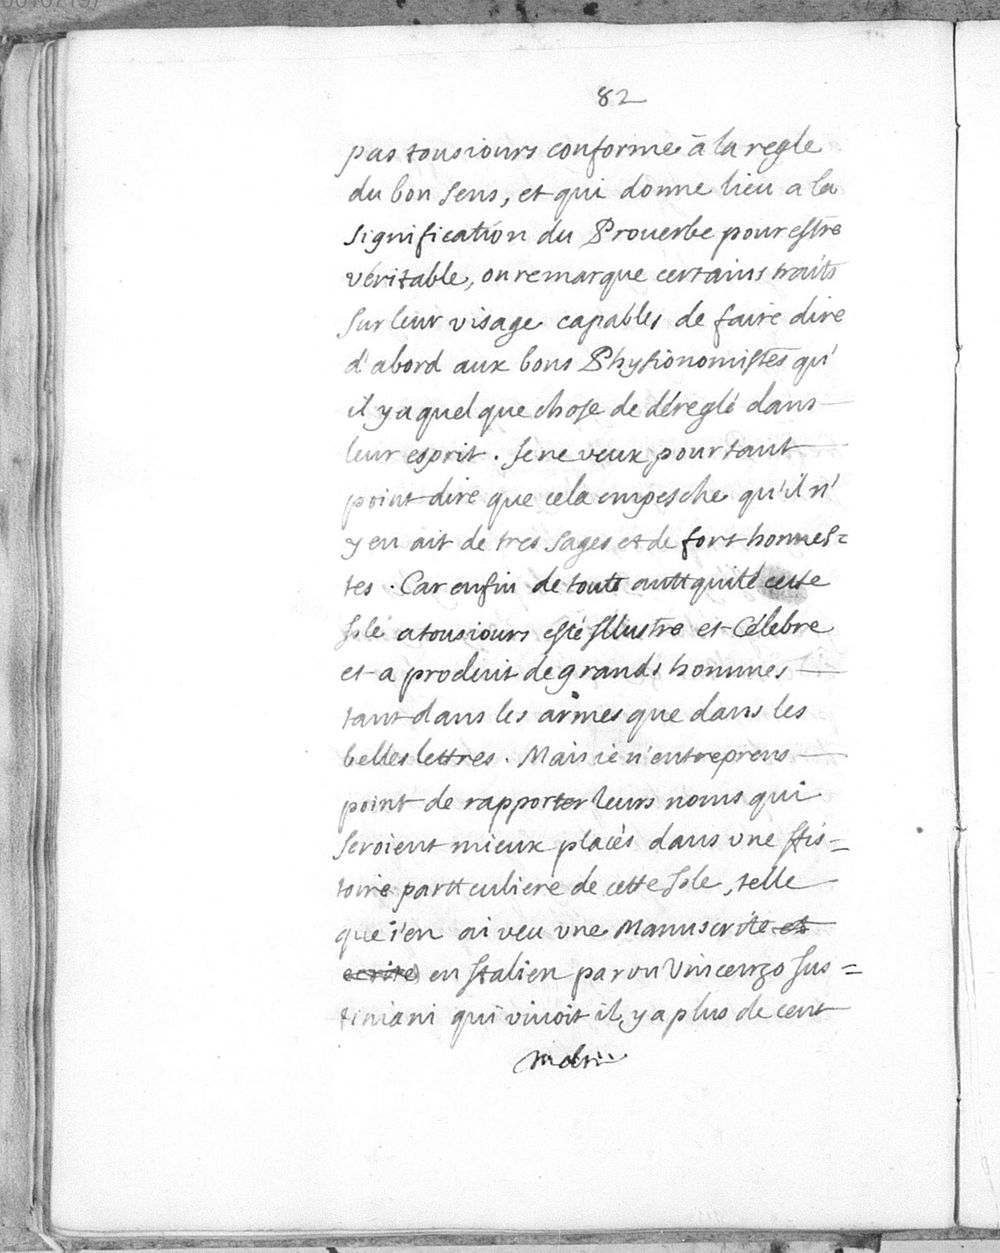 82
pas tousiours conforme à la regle
du bon sens, et qui donne lieu a la
signification du Prouerbe pour estre
véritable, on remarque certains traits
sur leur visage capables de faire dire
d'abord aux bons Physionomistes qu'
il y a quelque chose de déreglé dans
leur esprit. Je ne veux pourtant
point dire que cela empesche qu'il n'
y en ait de tres sages et de fort honnes=
tes. Car enfin de toute antiquité cette
Isle a tousiours esté Illustre et Célebre
et a produit de grands hommes
tant dans les armes que dans les
belles lettres. Mais ie n'entreprens
point de rapporter leurs noms qui
seroient mieux placés dans vne His=
toire particuliere de cette Isle, telle
que i'en ai veu vne Manuscrite et
ecrite en Italien par vn Vincenzo Jus=
tiniani qui viuoit il y a plus de cent